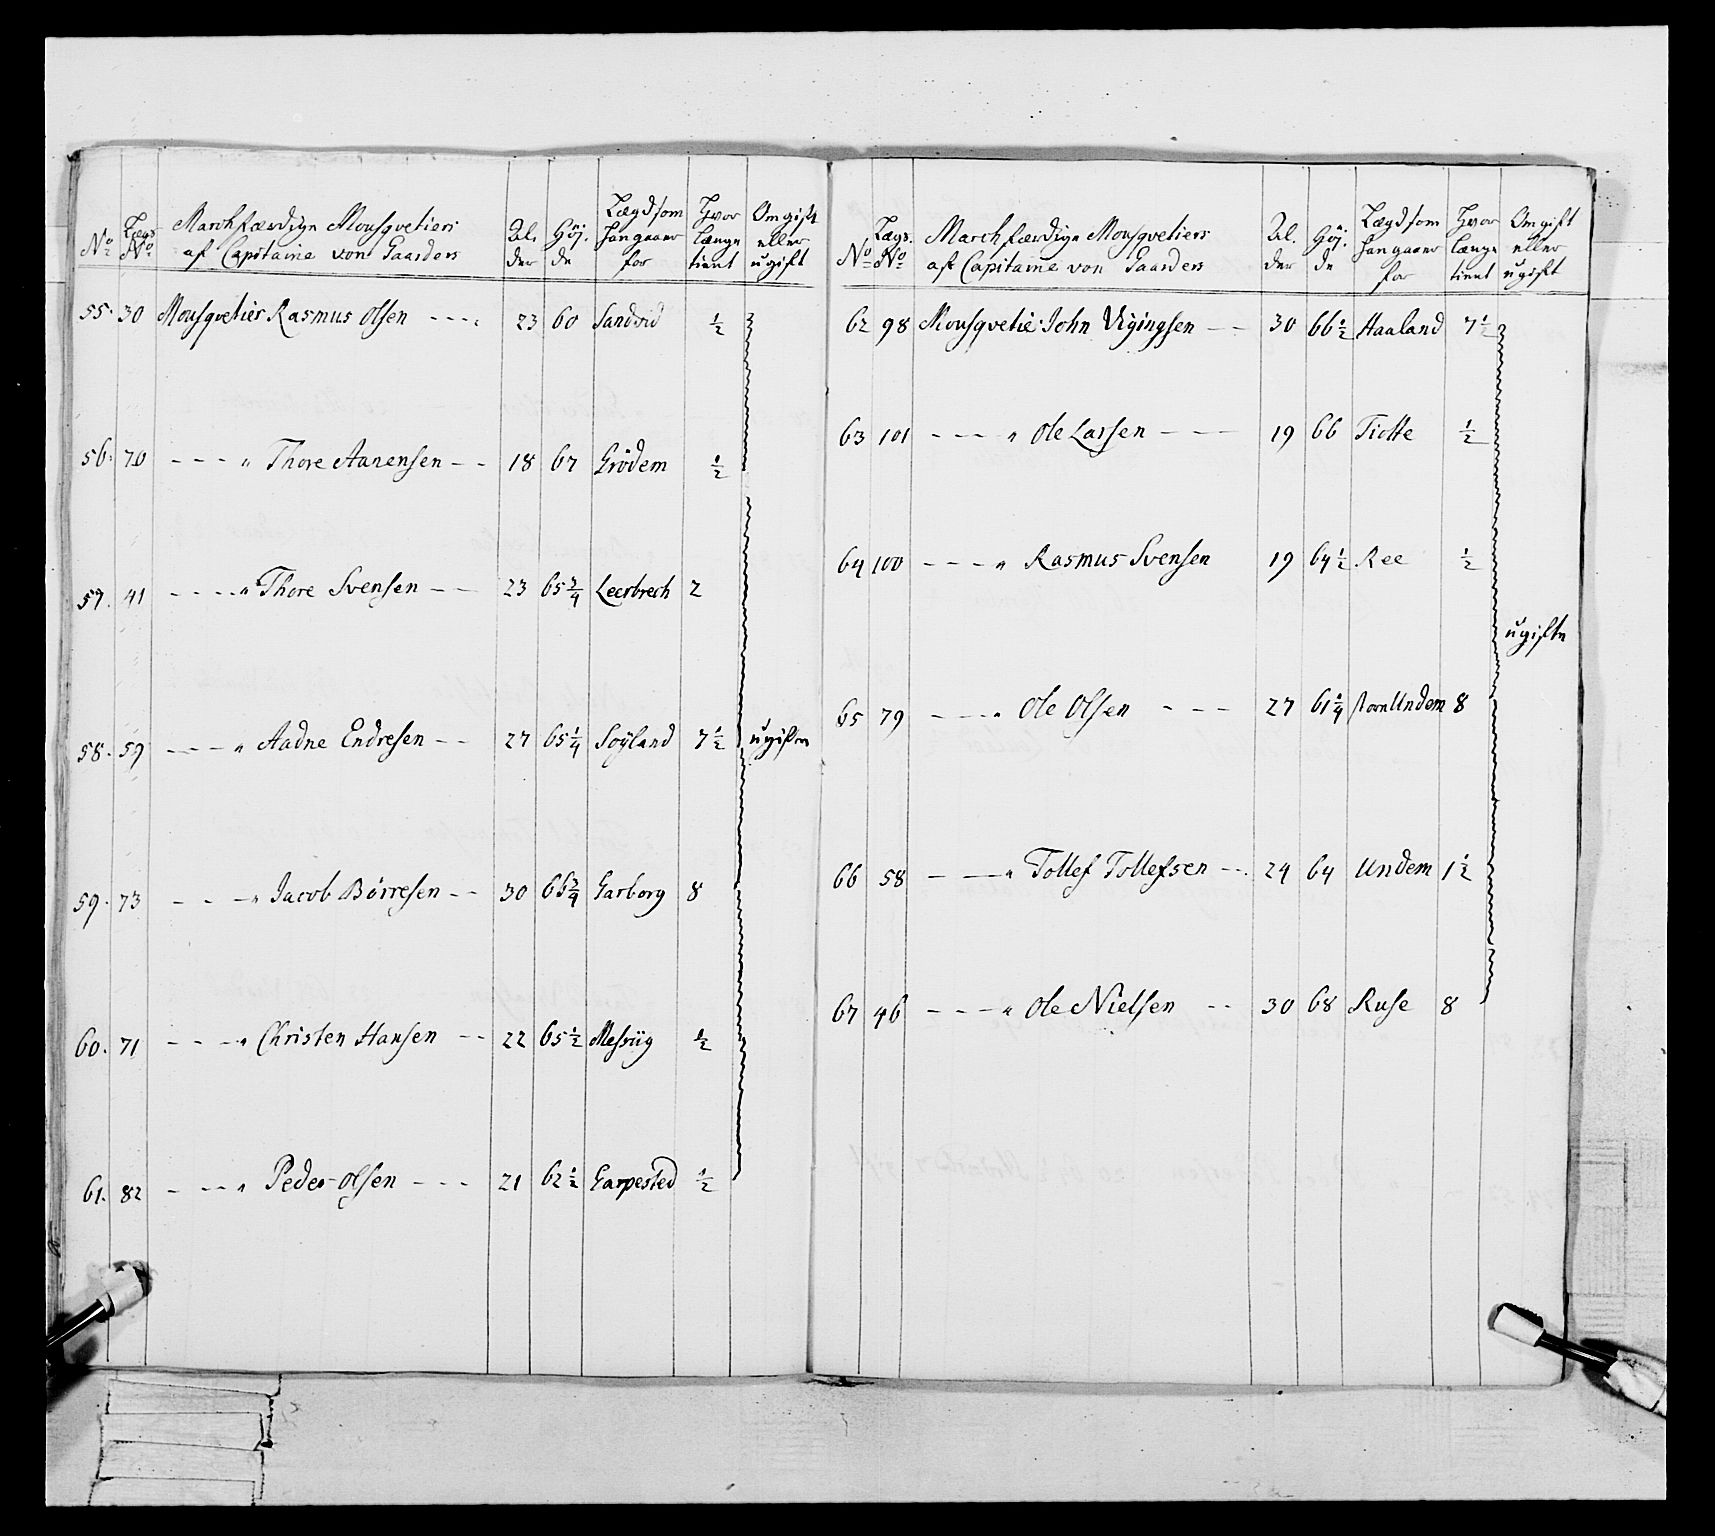 No
Lægs No
Marchfærdige Mousqvetiers af Capitaine von Gaarders
Alder
Höjde
Lægd som han gaaer for
Hvor længe tient
Om gift eller ugift
55. 30 Mousqvetier Rasmus Olsen - - - - 23 60 Sandvid ½
56. 70 - - - " Thore Aanensen - - 18 67 Grödem ½
57. 41 - - - - " Thore Svensen - - 23 65¾ Leerbrech 2
58. 59 - - - " Aadne Endresen - - 27 65¼ Soÿland 7½
ugifte
59. 73 - - - " Jacob Börresen - - 30 66¾ Garborg 8
60. 71 - - - " Christen Hansen - - 22 65½ ½
61. 82 - - - " Peder Olsen - - - 21 62½ Garpested ½
No
Lægs. No
Marchfærdige Mousqvetiers af Capitaine von Gaarders
Alder
Höjde
Lægd som han gaaer for
Hvor længe tient
Om gift eller ugift
62 98 Mousqvetier John Vigingsen - - 30 66½ Haaland 7½
63 101 - - - " Ole Larsen - - - 19 66 Tiotte ½
64 100 - - - " Rasmus Svensen 19 64½ Ree ½
ugifte
65 79 - - - " Ole Olsen - - - 27 61¼ Undem 8
66 58 - - " Tollef Tollefsen - - 24 64 Undem 1½
67 46 - - - " Ole Nielsen - - 30 68 Ruse 8